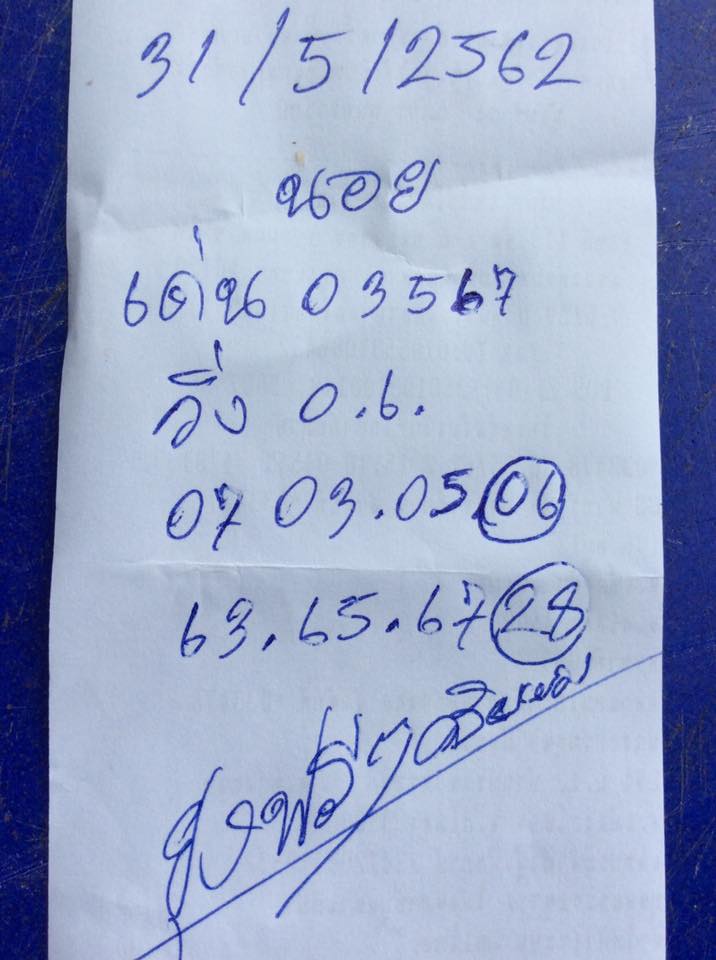 31/5/2562
นอย
เด่น 03567
วิ่ง 0.6.
07 03.05.06
63.65.67 28